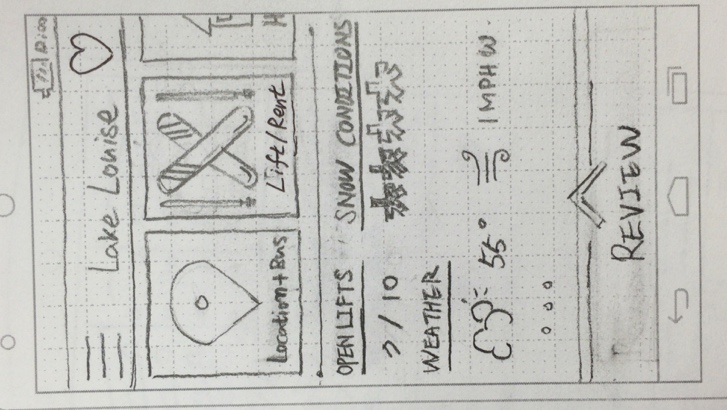 10:00
Lake Louise
Location+Bus
Lift/Rent
H
OPEN LIFTS
SNOW CONDITIONS
7/10
WEATHER
55° 1MPH W.
REVIEW